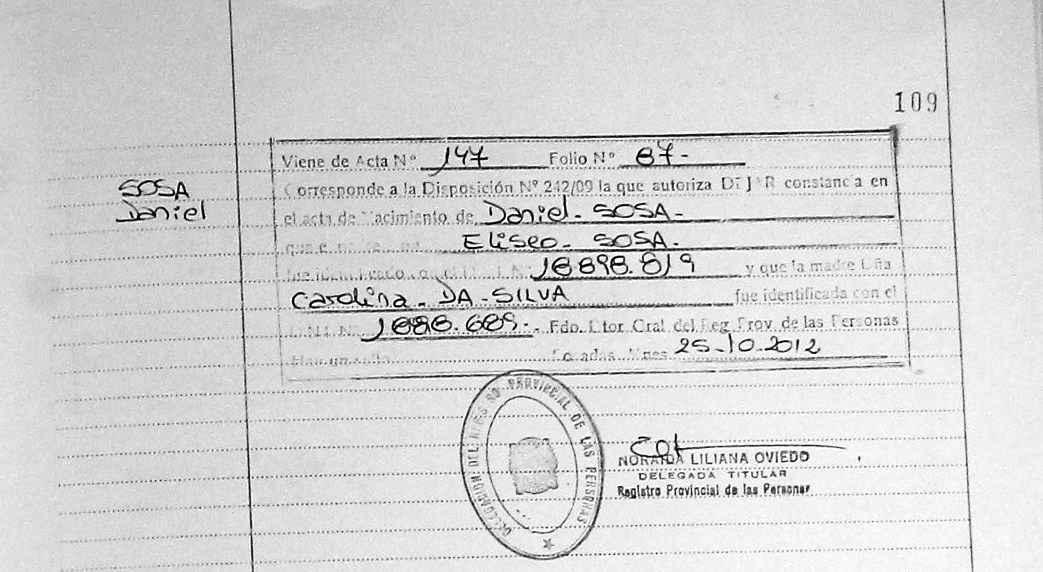 109
Viene de Acta Nº 147 Folio Nº 87-
SOSA
Daniel
Corresponde a la Disposición Nº 242/09 la que autoriza DEJAR constancia en
el acta de Nacimiento de Daniel - SOSA -
que el padre Eliseo - SOSA -
fue identificado con el D.N.I. Nº 18898.819 y que la madre Dña
Carolina - DA - SILVA fue identificada con el
D.N.I. Nº Fdo. Dtor Gral del Reg Prov. de las Personas
Hay un sello Posadas Mnes 25-10-2012
DELEGACION DEL REGISTRO PROVINCIAL DE LAS PERSONAS
NORAIDA LILIANA OVIEDO
DELEGADA TITULAR
Registro Provincial de las Personas